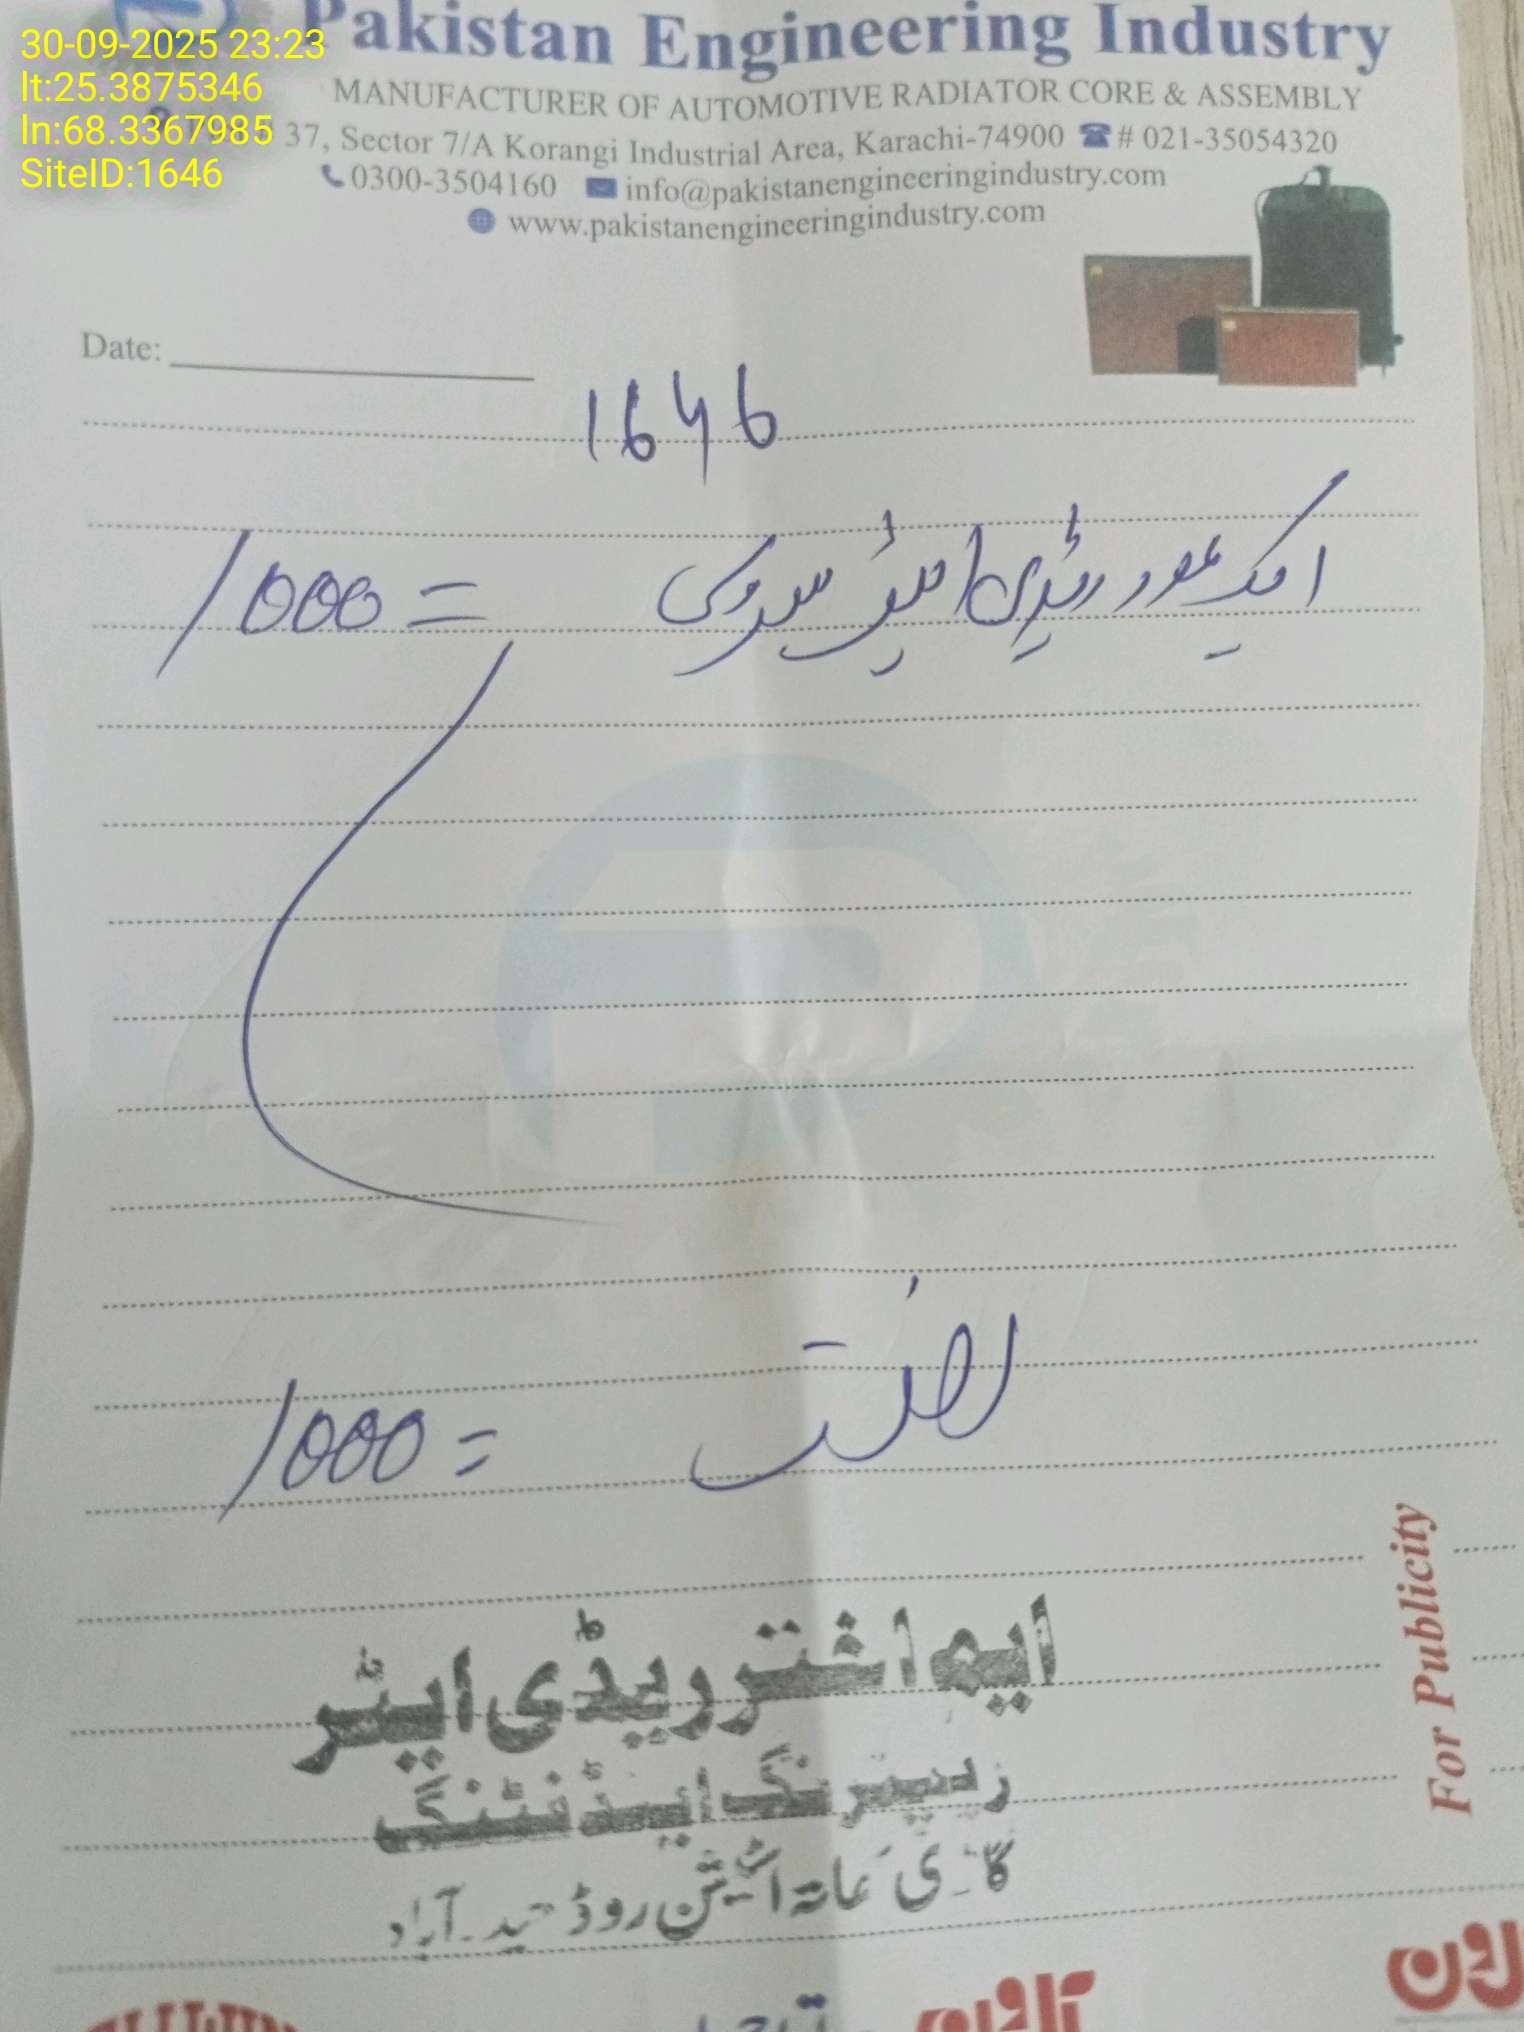 30-09-2025 23:23
lt:25.3875346
ln:68.3367985
SiteID:1646
Pakistan Engineering Industry
MANUFACTURER OF AUTOMOTIVE RADIATOR CORE & ASSEMBLY
37, Sector 7/A Korangi Industrial Area, Karachi-74900 # 021-35054320
0300-3504160 info@pakistanengineeringindustry.com
www.pakistanengineeringindustry.com
Date:
1646
ایک عدد ریڈی ایٹر سروس
1000 =
1000 =
ایم اختر ریڈی ایٹر
رپیرنگ اینڈ فٹنگ
گاڑی کھاتہ اسٹیشن روڈ حیدرآباد
For Publicity